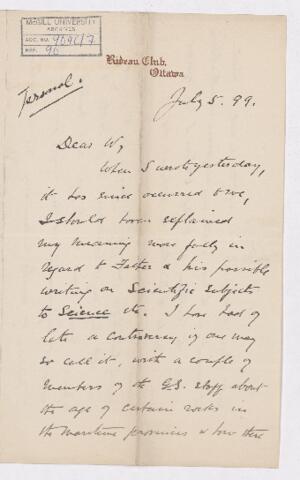 McGILL UNIVERSITY
ARCHIVES
ACC. NO.
REF.
Rideau Club,
Ottawa
Personal.
July 5. 99.
Dear W,
When I wrote yesterday,
it has since occurred to me,
I should have explained
my meaning more fully in
regard to Father & his possible
writing on Scientific subjects
to Science etc. I have had of
late a controversy if one may
so call it, with a couple of
members of the G.S. staff about
the age of certain rocks in
the Maritime provinces & how these